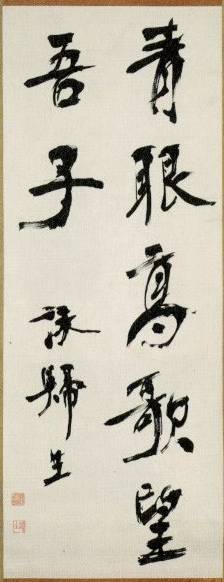 青眼高歌望
吾子
詠歸生